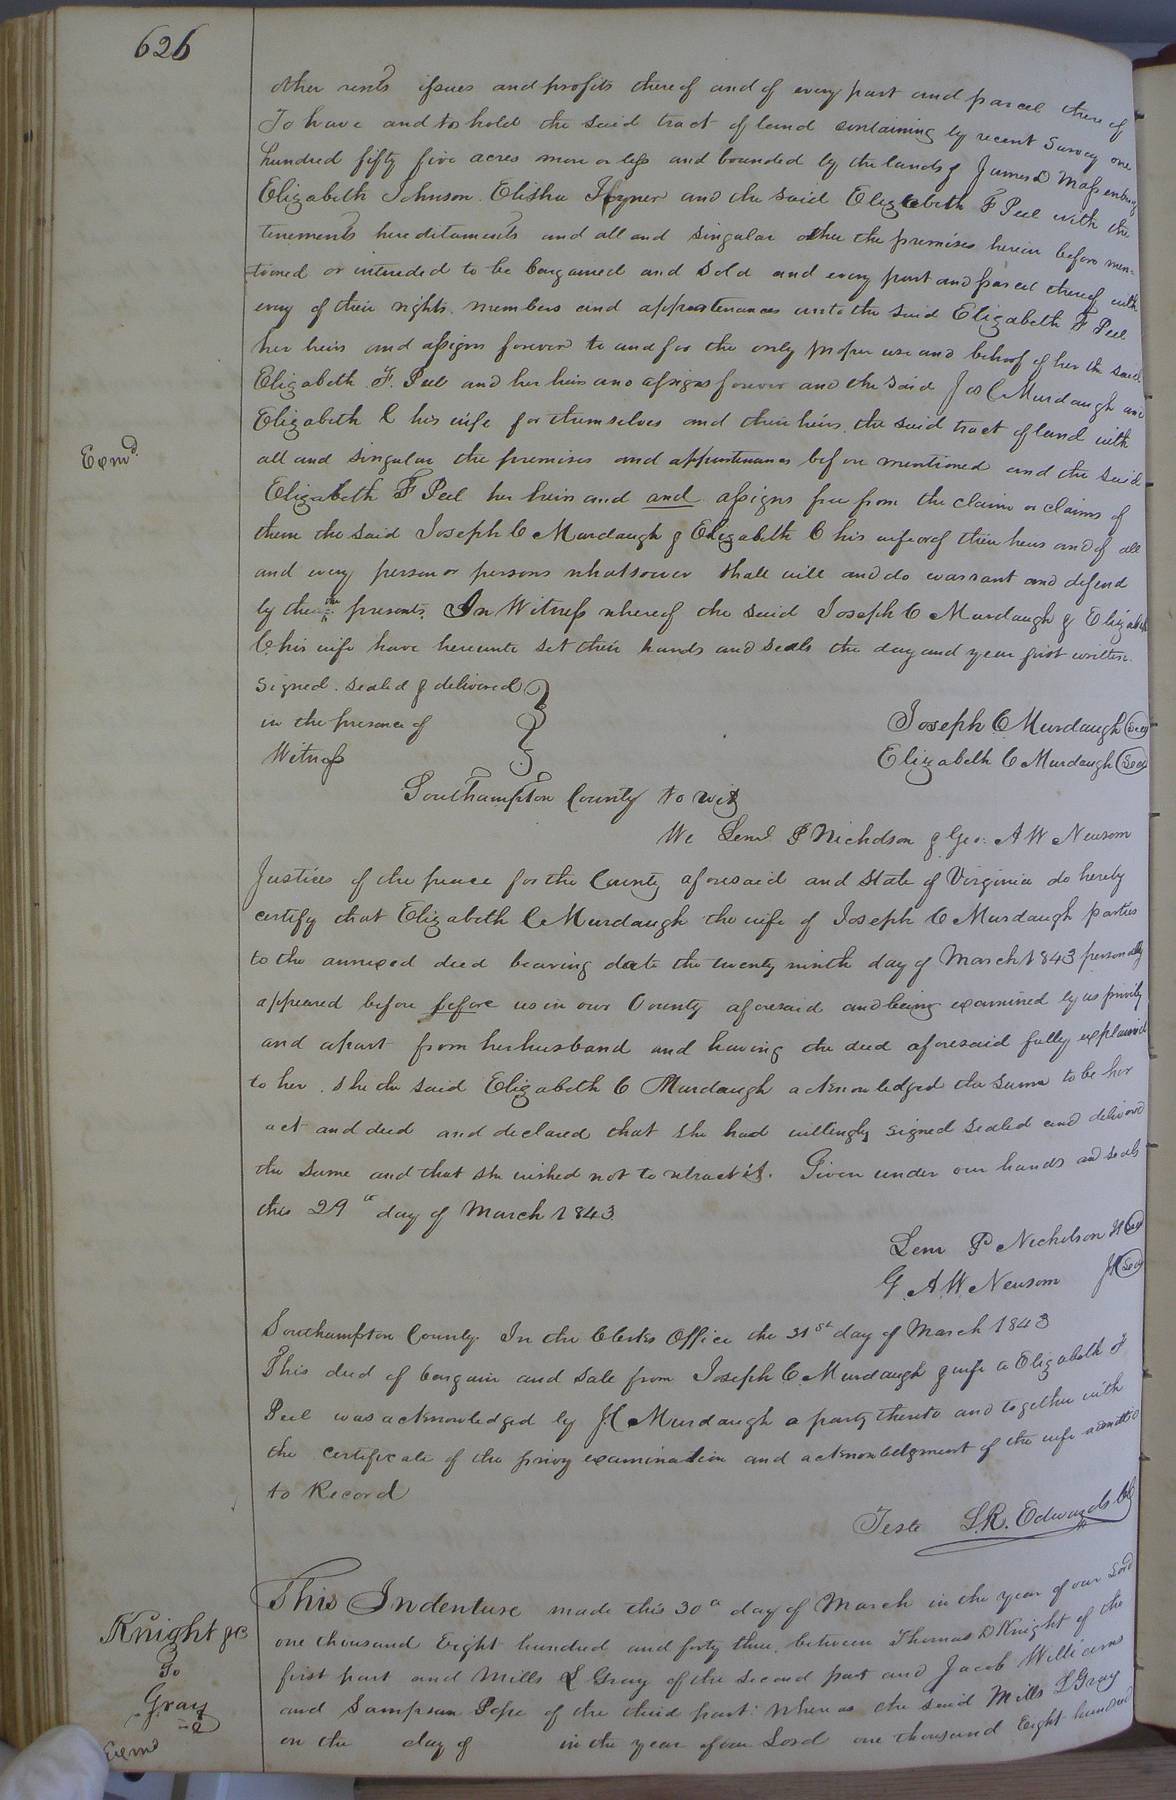 626
other rents issues and profits thereof and of every part and parcel there of
To have and to hold the said tract of land containing by recent Survey one
hundred fifty five acres more or less and bounded by the lands of James D Massenburg
Elizabeth Johnson Elisha Joyner and the said Elizabeth F Peel with the
tenements hereditaments and all and singular other the premises herein before men-
tioned or intended to be bargained and sold and every part and parcel thereof with
every of their rights members and appurtenances unto the said Elizabeth F Peel
her heirs and assigns forever to and for the only proper use and behoof of her the said
Elizabeth F. Peel and her heirs and assigns forever and the said Jos C Murdaugh and
Elizabeth C his wife for themselves and their heirs the said tract of land with
Exmd.
all and singular the premises and appurtenances before mentioned and the said
Elizabeth F Peel her heirs and and assigns free from the claim or claims of
them the said Joseph C Murdaugh & Elizabeth C his wife or of their heirs and of all
and every person or persons whatsoever shall will and do warrant and defend
by these presents. In Witness whereof the said Joseph C Murdaugh & Elizabeth
C his wife have hereunto set their hands and seals the day and year first written.
Signed. sealed & delivered
in the presence of
Joseph C Murdaugh Seal
Witness
Elizabeth C Murdaugh Seal
Southampton County to wit
We Leml. P Nicholson & Geo: A W Newsom
Justices of the peace for the County aforesaid and State of Virginia do hereby
certify that Elizabeth C Murdaugh the wife of Joseph C Murdaugh parties
to the annexed deed bearing date the twenty ninth day of March 1843 personally
appeared before before us in our County aforesaid and being examined by us privily
and apart from her husband and having the deed aforesaid fully explained
to her. she the said Elizabeth C Murdaugh acknowledged the same to be her
act and deed and declared that she had willingly signed sealed and delivered
the same and that she wished not to retract it. Given under our hands and seals
this 29th day of March 1843
Lem P Nicholson JP Seal
G. A. W Newsom JP Seal
Southampton County. In the Clerks Office the 31st day of March 1843
This deed of bargain and sale from Joseph C. Murdaugh & wife to Elizabeth F
Peel was acknowledged by J.C Murdaugh a party thereto and together with
the certificate of the privy examination and acknowledgment of the wife admitted
to Record
Teste L.R. Edwards Clk
This Indenture made this 30th day of March in the year of our Lord
Knight &c
one thousand Eight hundred and forty three between Thomas D Knight of the
To
first part and Mills L Gray of the second part and Jacob Williams
Gray
and Sampson Pope of the third part: Whereas the said Mills L Gray
Exmd
on the day of in the year of our Lord one thousand Eight hundred